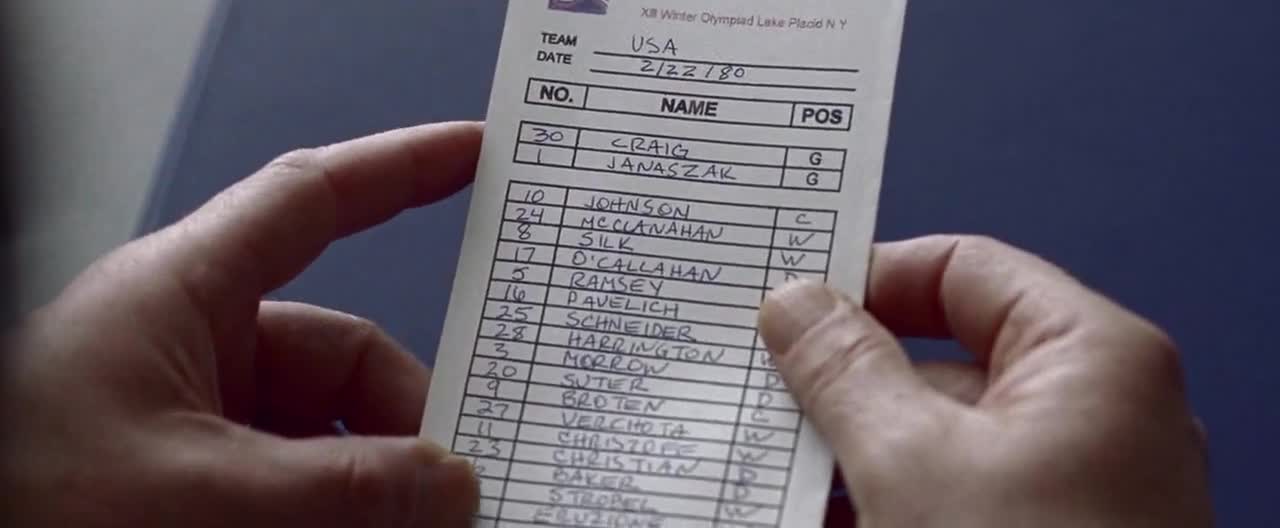 XIII Winter Olympiad Lake Placid N Y
TEAM USA
DATE 2/22/80
NO. NAME POS
30 CRAIG G
1 JANASZAK G
10 JOHNSON C
24 MCCLANAHAN W
8 SILK W
17 O'CALLAHAN D
5 RAMSEY
16 PAVELICH
25 SCHNEIDER
28 HARRINGTON W
3 MORROW D
20 SUTER D
9 BROTEN C
27 VERCHOTA W
11 CHRISTOFF W
23 CHRISTIAN D
6 BAKER D
STROBEL W
ERUZIONE